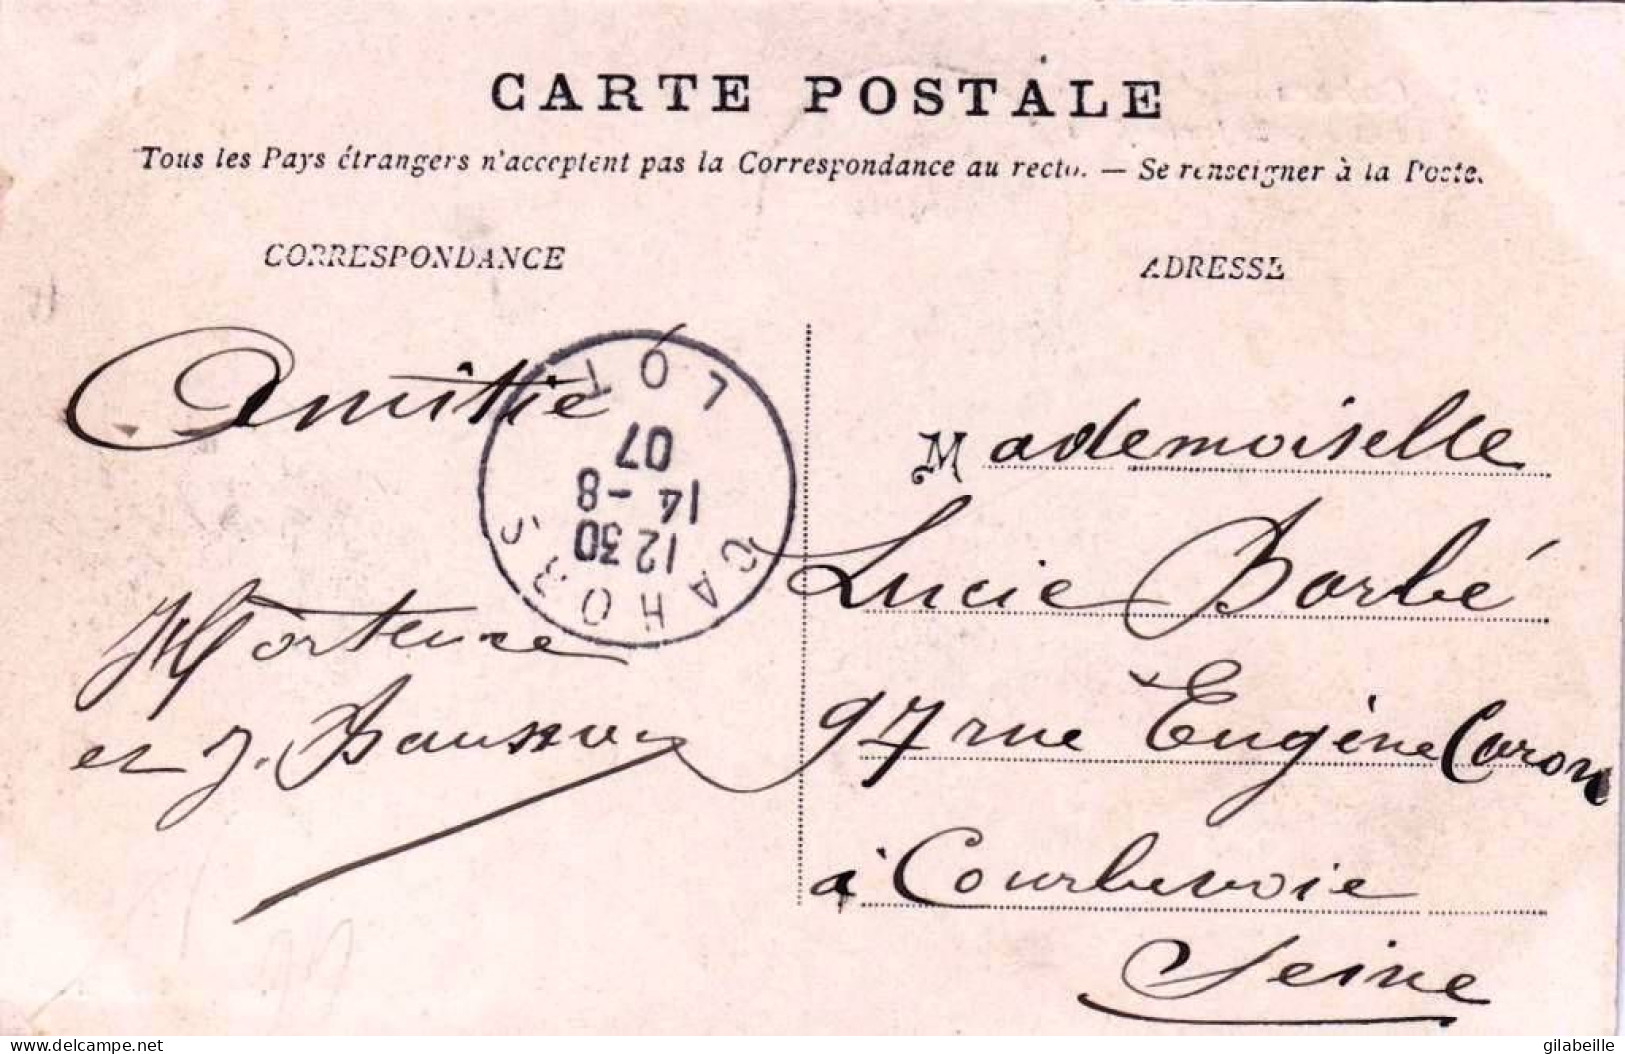 CARTE POSTALE
Tous les Pays étrangers n'acceptent pas la Correspondance au recto. — Se renseigner à la Poste.
CORRESPONDANCE
ADRESSE
Amitié
Hortense
et J.
CAHORS
12 30
14 - 8
07
LOT
Mademoiselle
Lucie Barbé
97 rue Eugène Caron
à Courbevoie
Seine
delcampe.net
gilabeille